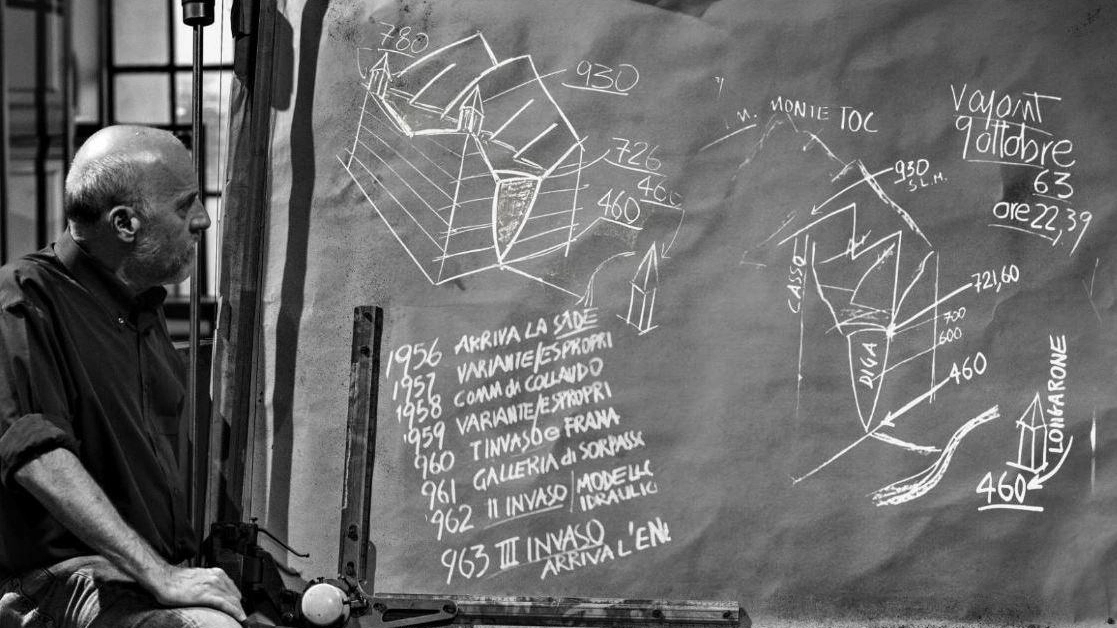 780
930
726
460
460
1956 ARRIVA LA SADE
1957 VARIANTE/ESPROPRI
1958 COMM di COLLAUDO
1959 VARIANTE/ESPROPRI
960 I INVASO e FRANA
961 GALLERIA di SORPASS
962 II INVASO / MODELLO
IDRAULIC
963 III INVASO
ARRIVA L'ENE
M. MONTE TOC
Vajont
9 ottobre
63
ore 22,39
930
S.L.M.
CASSO
721,60
700
600
DIGA
460
LONGARONE
460